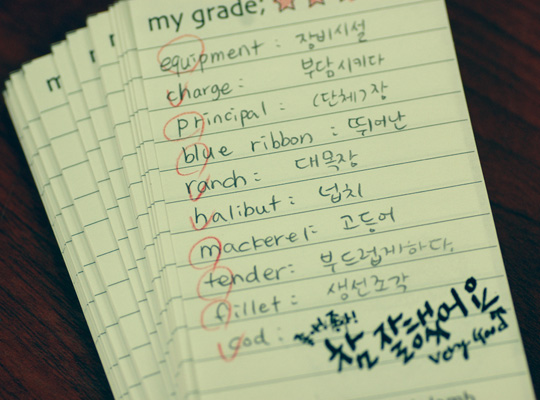 my grade;
equipment : 장비시설
charge : 부담시키다
principal : (단체)장
blue ribbon : 뛰어난
ranch : 대목장
halibut : 넙치
mackerel : 고등어
tender : 부드럽게하다.
fillet : 생선조각
god :
참 잘했어요
very good